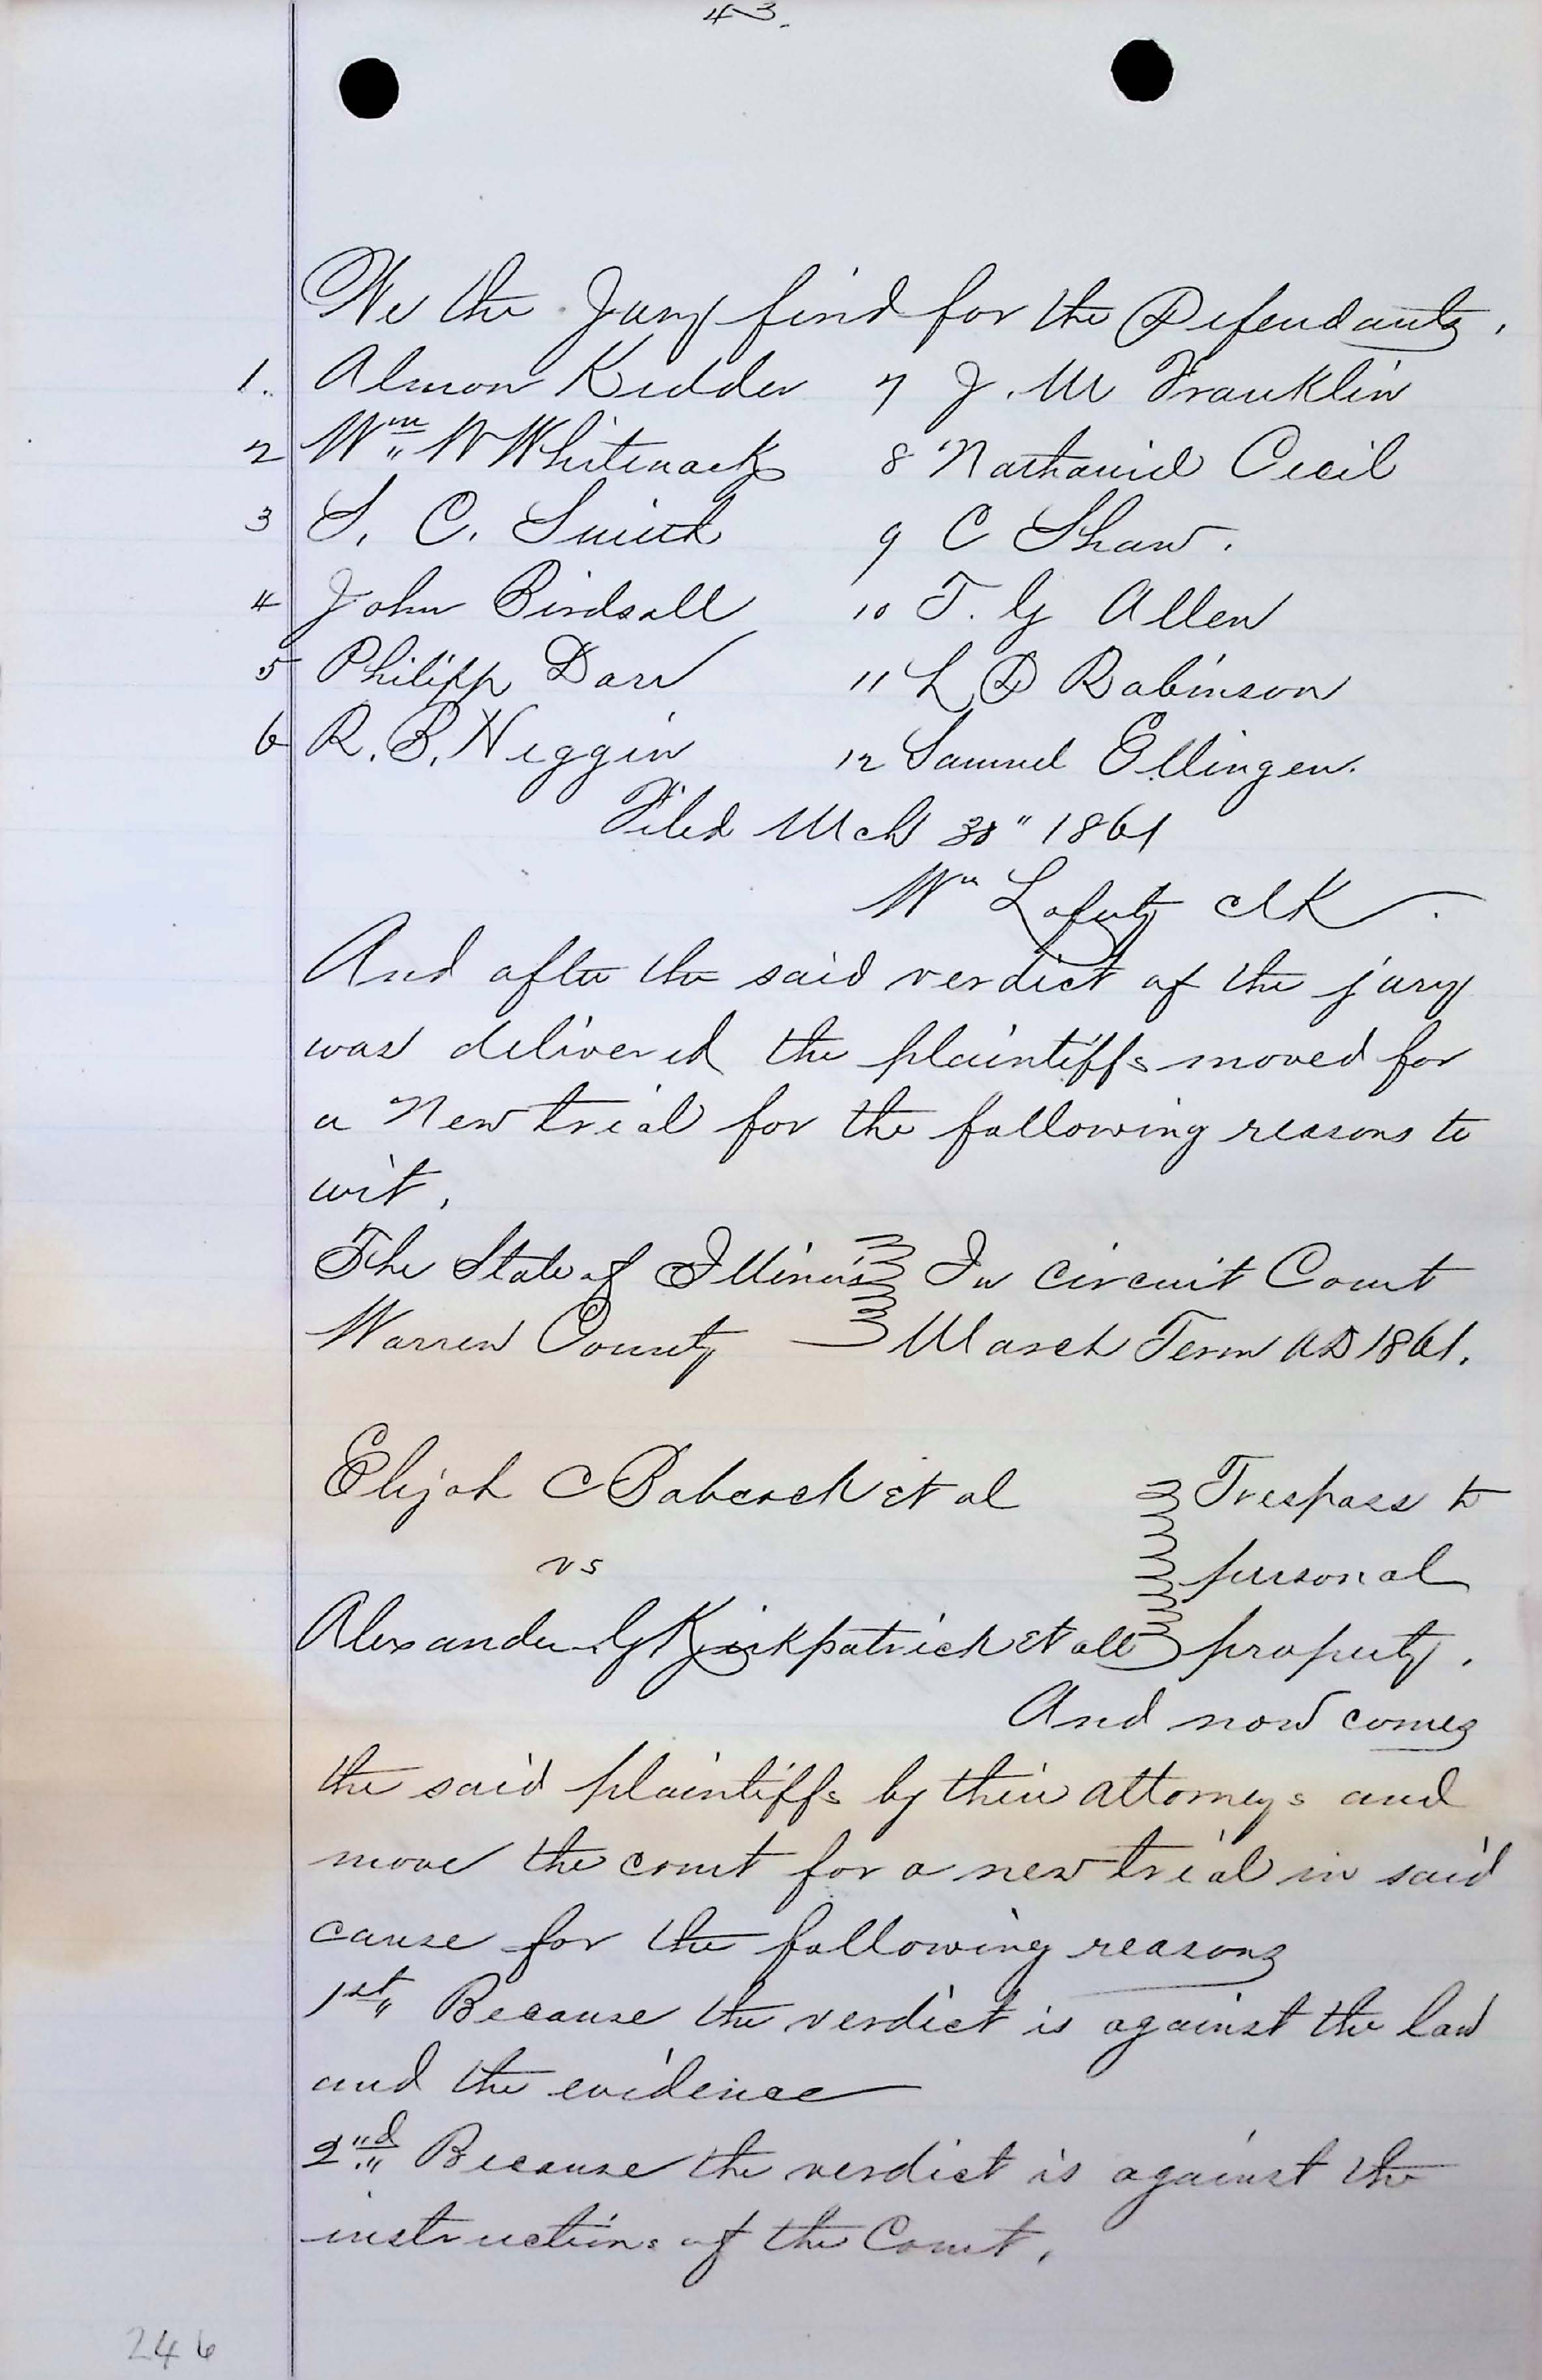 43.
We the Jury find for the Defendants.
1. Almon Kidder 7 J. M Franklin
2 Wm W Whitenack 8 Nathaniel Cecil
3 S. C. Smith 9 C Shaw.
4 John Birdsall 10 T. G Allen
5 Philipp Darr 11 L D Robinson
6 R. B. Niggin 12 Samuel Ellingen.
Filed Mch 30" 1861
Wm Lafuty clk.
And after the said verdict of the jury
was delivered the plaintiffs moved for
a New trial for the following reasons to
wit.
The State of Illinois In circuit Court
Warren County March Term AD 1861.
Elijah C Babcock et al Trespass to
vs personal
Alexander G Kirkpatrick et all property.
And now comes
the said plaintiffs by their attorneys and
move the court for a new trial in said
cause for the following reasons
1st" Because the verdict is against the law
and the evidence
2nd" Because the verdict is against the
instructions of the Court.
246